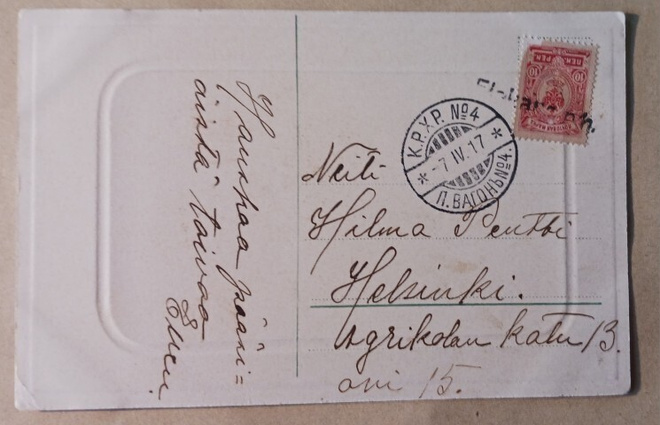 Hauskaa pääsi=
äistä toivoo
Elleni
K.P.X.P. №4
-7 IV. 17
П. ВАГОНЪ №4.
10 10
PEN. PEN.
Neiti
Hilma Pentti
Helsinki.
Agrikolan katu 13.
ovi 15.